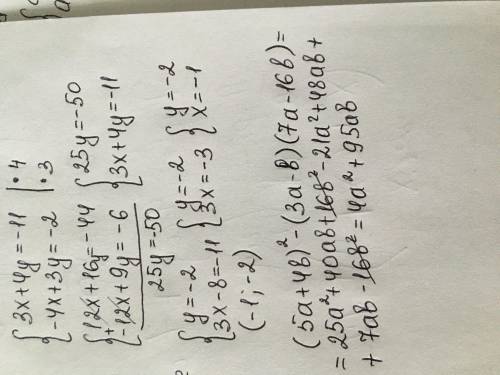 {3x+4y=-11 |·4
{-4x+3y=-2 |·3
{12x+16y=-44 {25y=-50
+{-12x+9y=-6 {3x+4y=-11
25y=-50
{y=-2 {y=-2 {y=-2
{3x-8=-11 {3x=-3 {x=-1
(-1;-2)
(5a+4b)²-(3a-b)(7a-16b)=
=25a²+40ab+16b²-21a²+48ab+
+7ab-16b²=4a²+95ab